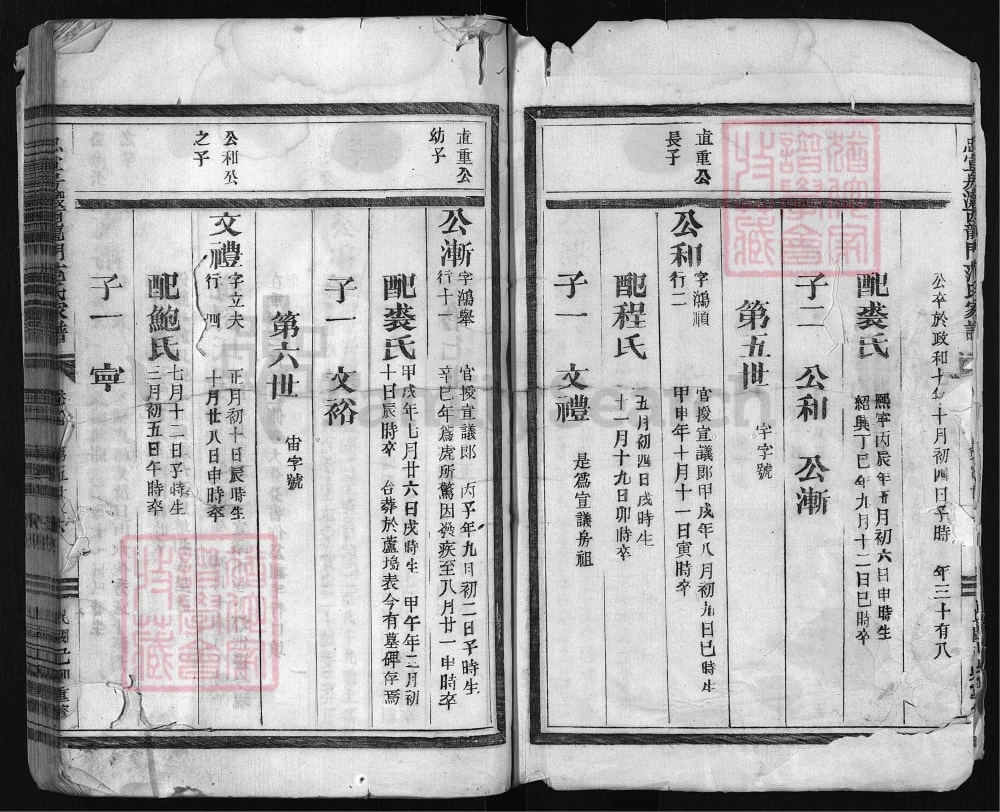 公卒於政和十年十月初四日子時 年三十有八
配裘氏
熙寧丙辰年五月初六日申時生
紹興丁巳年九月十二日巳時卒
子二 公和 公漸
第五世 宇字號
直重公
長子
公和
字鴻順
行二
官授宣議郎甲戌年八月初九日巳時生
甲申年十月十一日寅時卒
配程氏
五月初四日戌時生
十一月十九日卯時卒
子一 文禮 是爲宣議房祖
直重公
幼子
公漸
字鴻舉
行十一
官授宣議郎 丙子年九月初二日子時生
辛巳年爲虎所驚因發疾至八月廿一申時卒
配裘氏
甲戌年七月廿六日戌時生 甲午年二月初
十日辰時卒 合葬於蘆塢表今有墓碑存焉
子一 文裕
第六世 宙字號
公和公
之子
文禮
字立夫
行四
正月初十日辰時生
十月廿八日申時卒
配鮑氏
七月十二日子時生
三月初五日午時卒
子一 寧